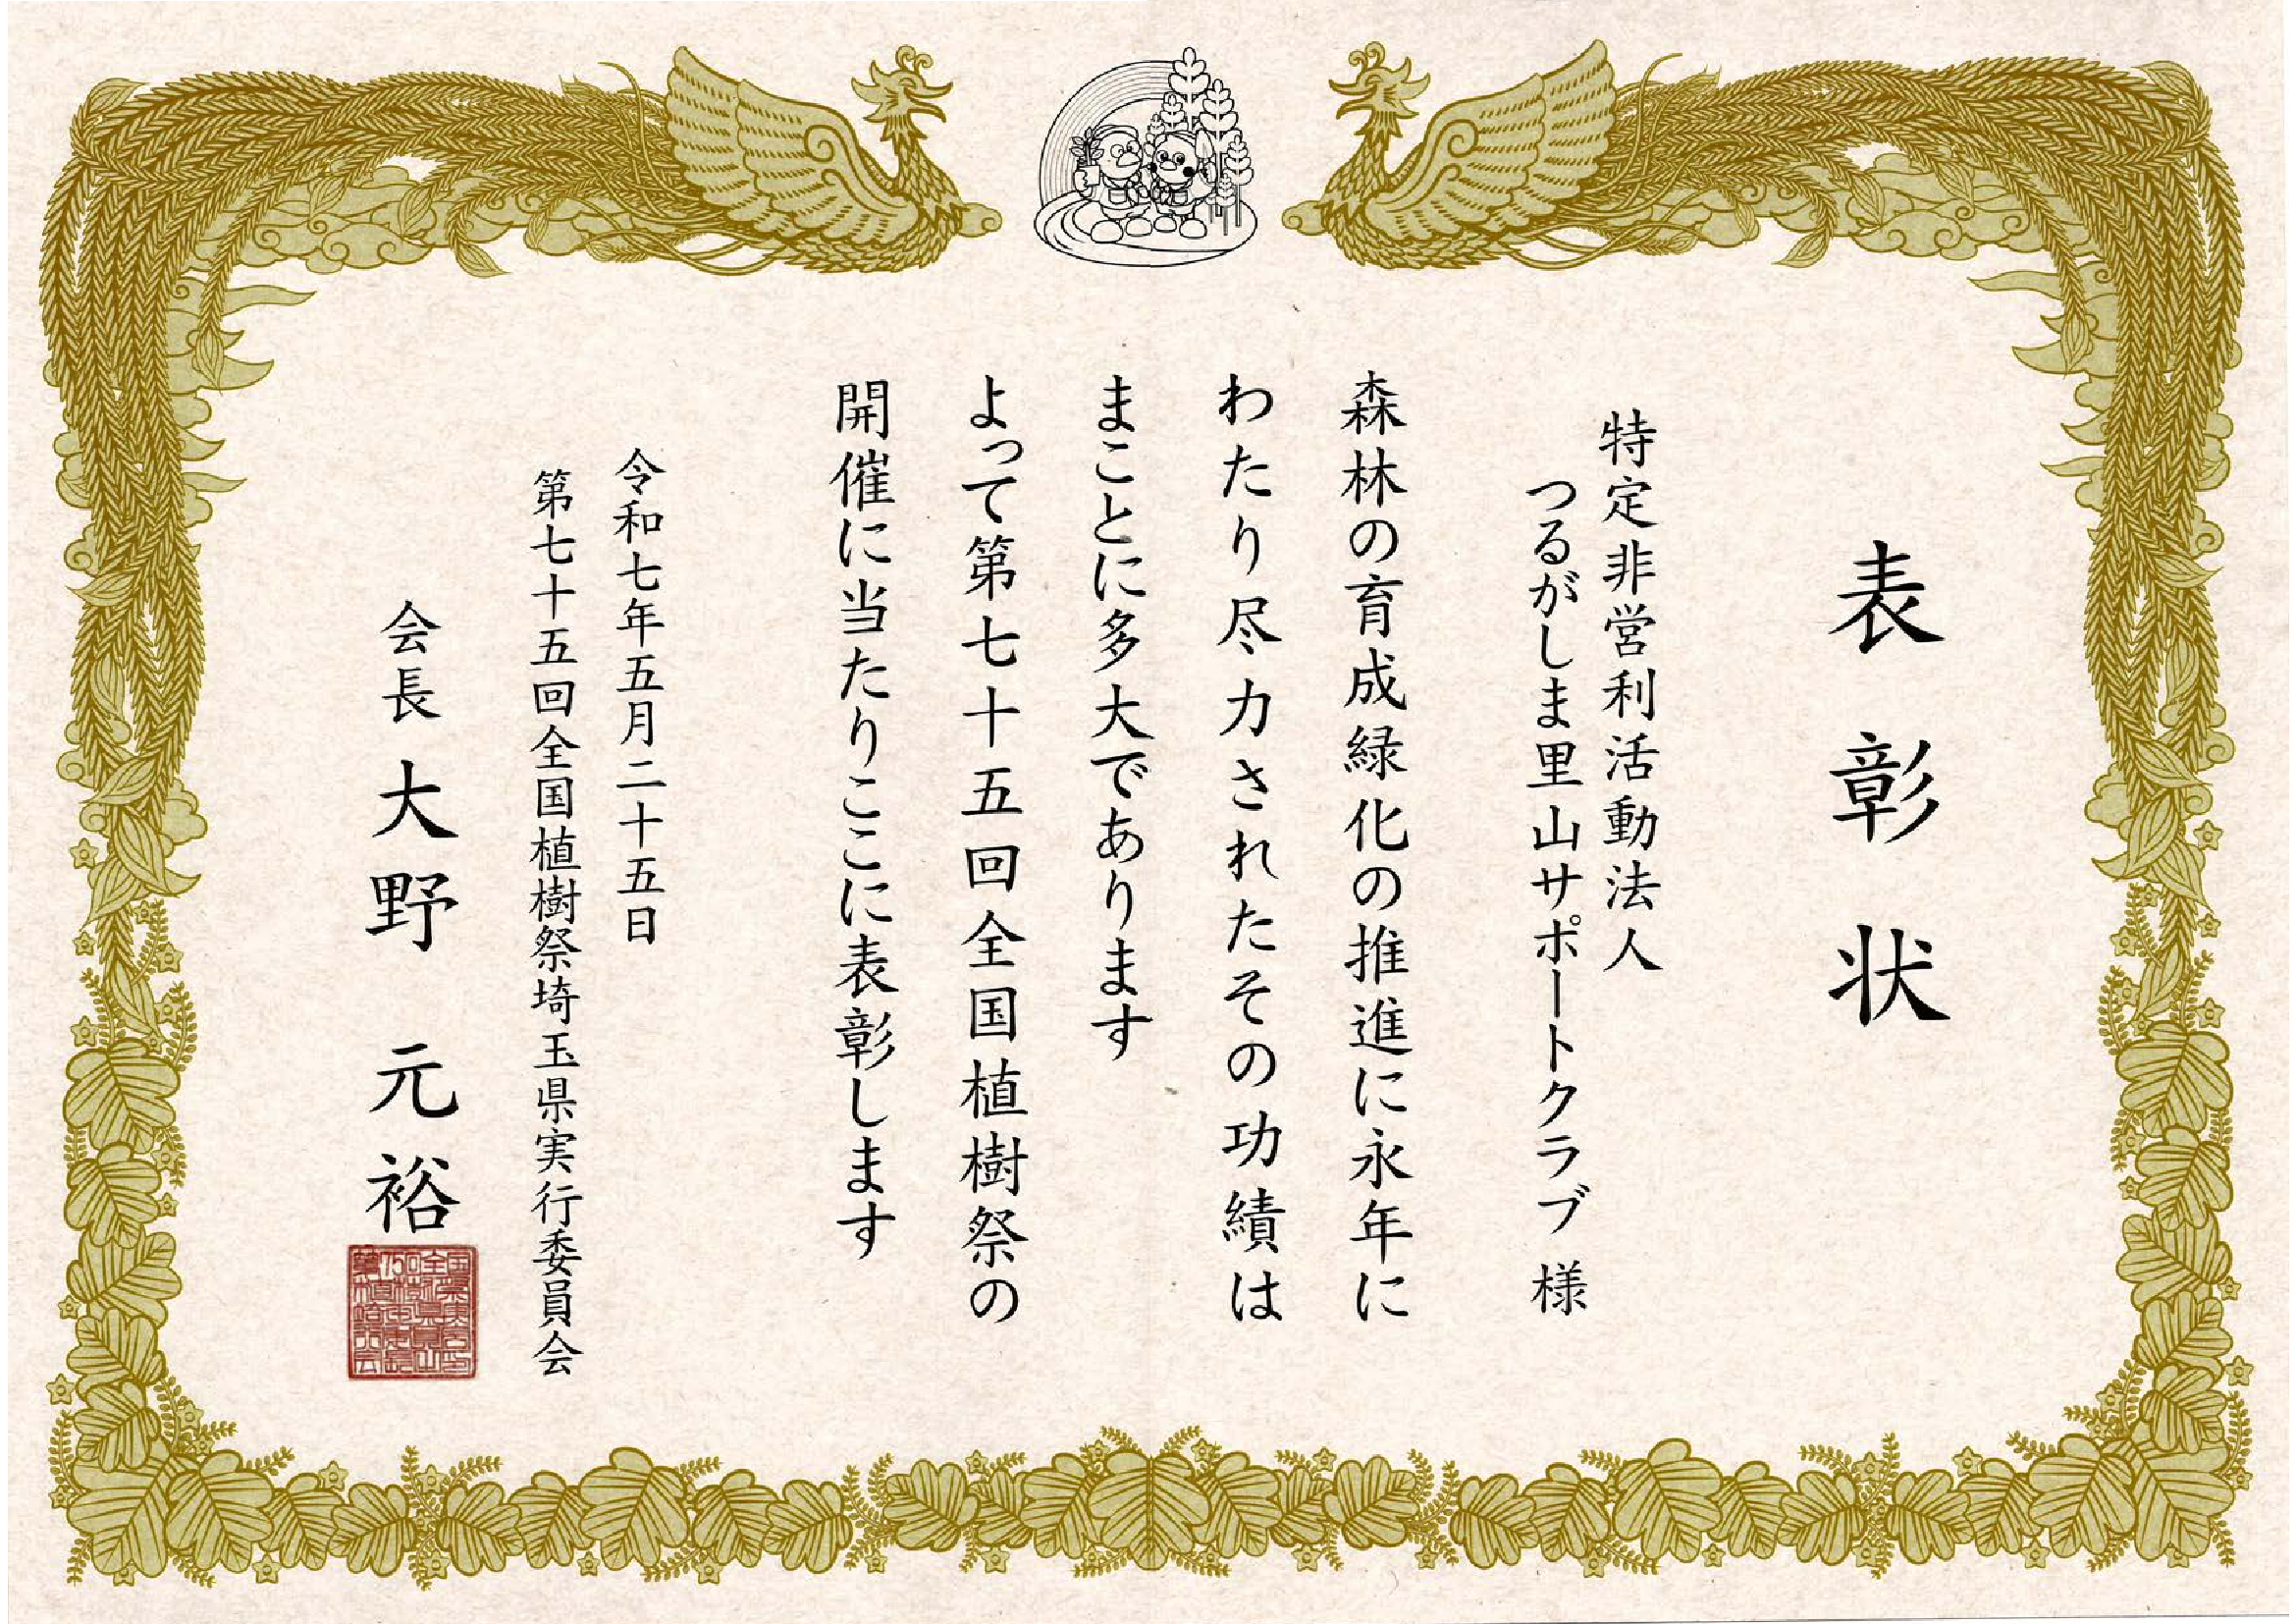 表彰状
特定非営利活動法人
つるがしま里山サポートクラブ 様
森林の育成緑化の推進に永年に
わたり尽力されたその功績は
まことに多大であります
よって第七十五回全国植樹祭の
開催に当たりここに表彰します
令和七年五月二十五日
第七十五回全国植樹祭埼玉県実行委員会
会長 大野 元裕